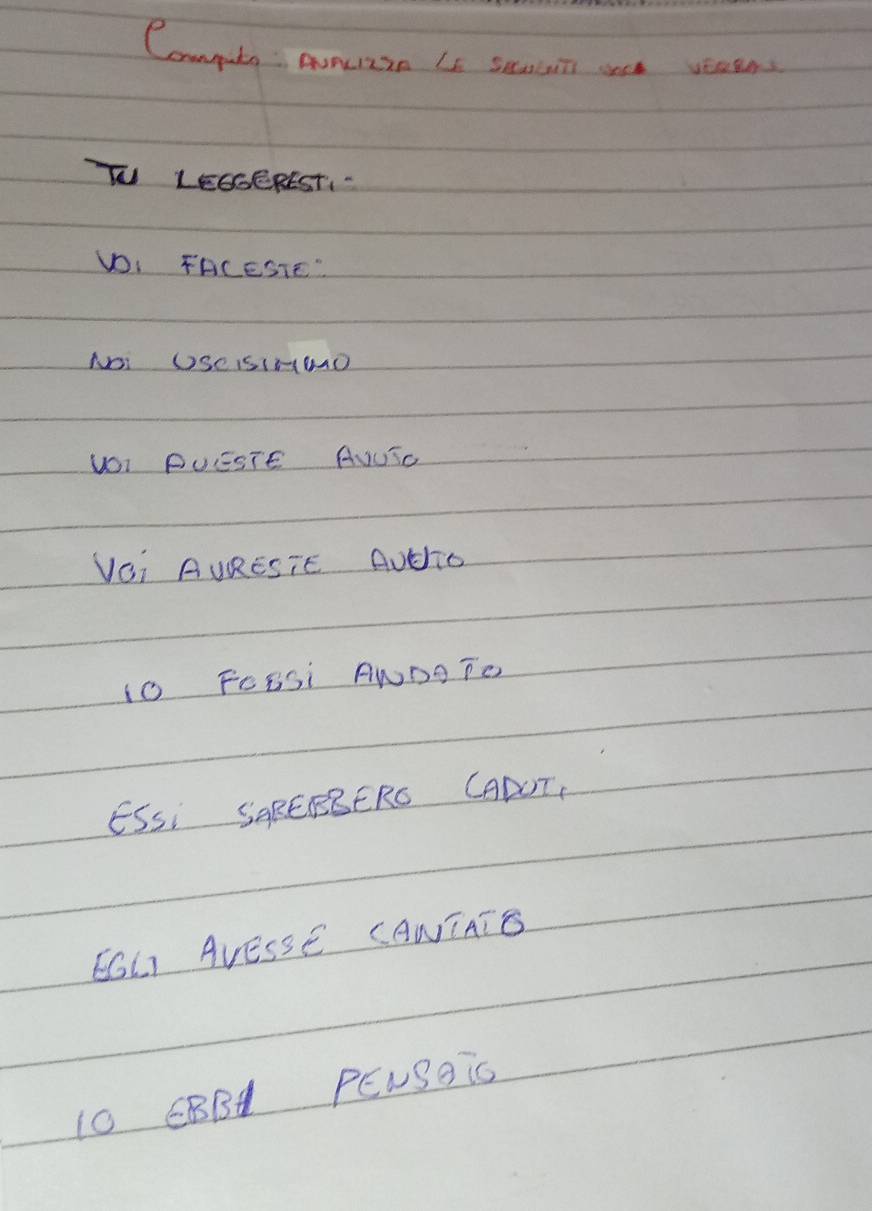 Compito: ANALIZZA LE SEGUENTI voci VERBALI
TU LEGGERESTI-
VOI FACESTE:
NOI USCISIMMO
VOI AVESTE AVUTO
VOI AVRESTE AVUTO
IO FOSSI ANDATO
ESSI SAREBBERO CADUTI
EGLI AVESSE CANTATO
IO EBBI PENSATO